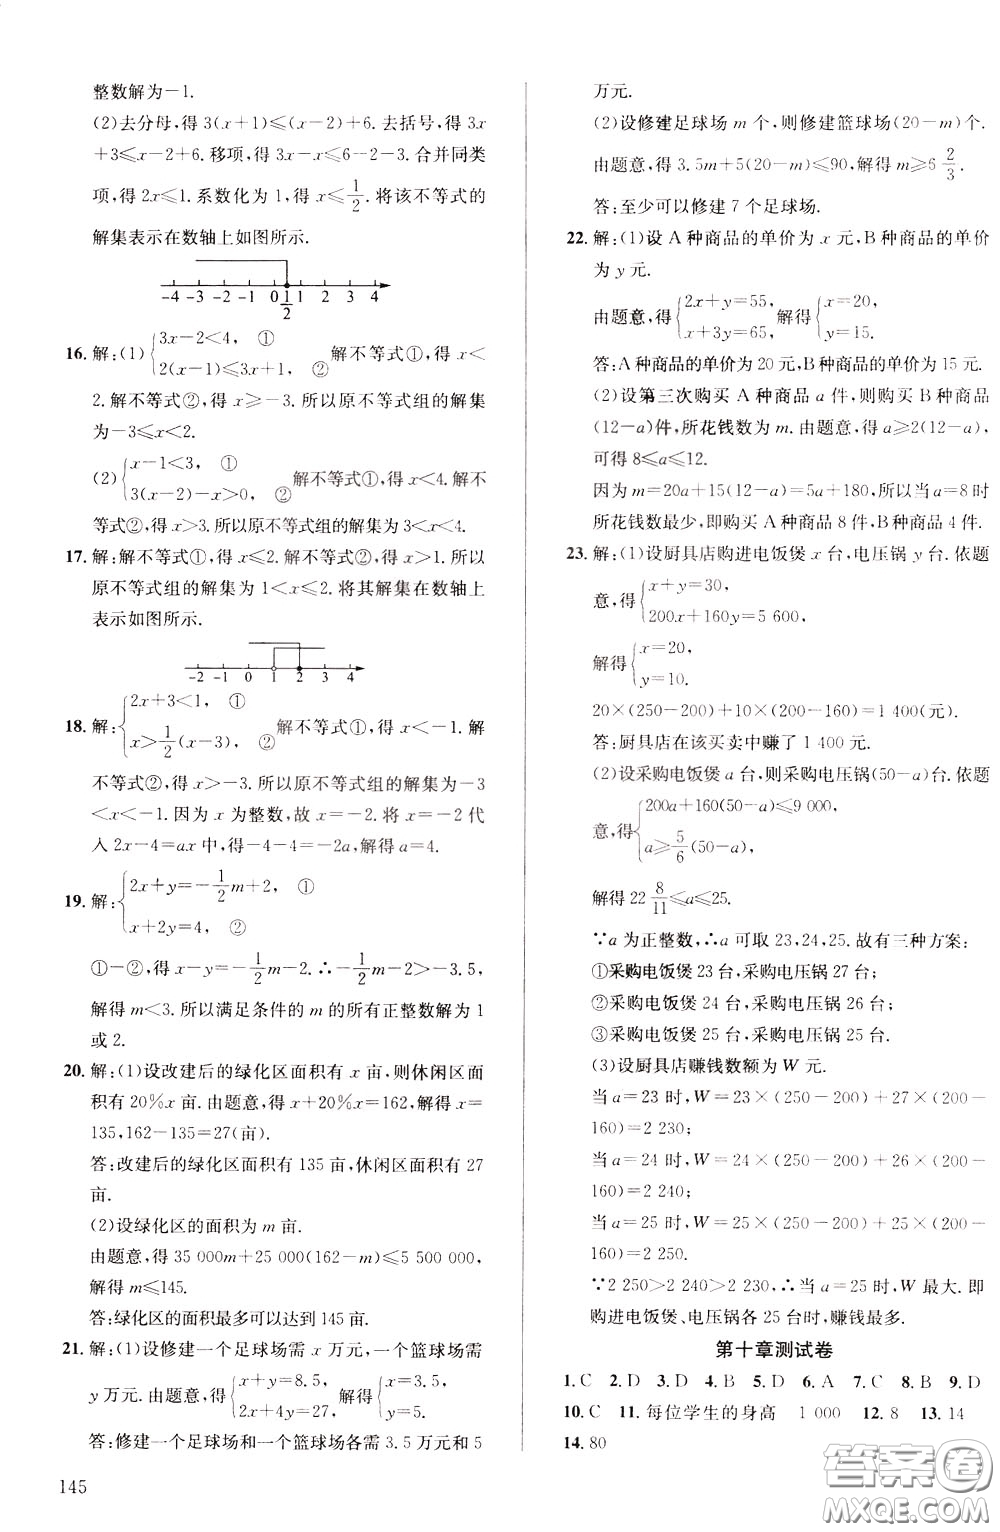 整数解为－1.
(2)去分母,得 3(x+1)⩽(x-2)+6. 去括号,得 3x
+3⩽x-2+6. 移项,得 3x-x⩽6-2-3. 合并同类
项,得 2x⩽1. 系数化为 1,得 x⩽1/2. 将该不等式的
解集表示在数轴上如图所示.
-4 -3 -2 -1 0 1/2 1 2 3 4
16. 解:(1){3x-2<4, ① 2(x-1)⩽3x+1, ② 解不等式①,得 x<
2. 解不等式②,得 x⩾-3. 所以原不等式组的解集为
-3⩽x<2.
(2){x-1<3, ① 3(x-2)-x>0, ② 解不等式①,得 x<4. 解不
等式②,得 x>3. 所以原不等式组的解集为 3<x<4.
17. 解:解不等式①,得 x⩽2. 解不等式②,得 x>1. 所以
原不等式组的解集为 1<x⩽2. 将其解集在数轴上
表示如图所示.
-2 -1 0 1 2 3 4
18. 解:{2x+3<1, ① x>1/2(x-3), ② 解不等式①,得 x<-1. 解
不等式②,得 x>-3. 所以原不等式组的解集为-3
<x<-1. 因为 x 为整数,故 x=-2. 将 x=-2 代
入 2x-4=ax 中,得-4-4=-2a,解得 a=4.
19. 解:{2x+y=-1/2m+2, ① x+2y=4, ②
①-②,得 x-y=-1/2m-2. ∴-1/2m-2>-3.5,
解得 m<3. 所以满足条件的 m 的所有正整数解为 1
或 2.
20. 解:(1)设改建后的绿化区面积有 x 亩,则休闲区面
积有 20%x 亩. 由题意,得 x+20%x=162,解得 x=
135,162-135=27(亩).
答:改建后的绿化区面积有 135 亩,休闲区面积有 27
亩.
(2)设绿化区的面积为 m 亩.
由题意,得 35 000m+25 000(162-m)⩽5 500 000,
解得 m⩽145.
答:绿化区的面积最多可以达到 145 亩.
21. 解:(1)设修建一个足球场需 x 万元,一个篮球场需
y 万元. 由题意,得{x+y=8.5, 2x+4y=27, 解得{x=3.5, y=5.
答:修建一个足球场和一个篮球场各需 3.5 万元和 5
145
万元.
(2)设修建足球场 m 个,则修建篮球场(20-m)个.
由题意,得 3.5m+5(20-m)⩽90,解得 m⩾6 2/3.
答:至少可以修建 7 个足球场.
22. 解:(1)设 A 种商品的单价为 x 元,B 种商品的单价
为 y 元.
由题意,得{2x+y=55, x+3y=65, 解得{x=20, y=15.
答:A 种商品的单价为 20 元,B 种商品的单价为 15 元.
(2)设第三次购买 A 种商品 a 件,则购买 B 种商品
(12-a)件,所花钱数为 m. 由题意,得 a⩾2(12-a),
可得 8⩽a⩽12.
因为 m=20a+15(12-a)=5a+180,所以当 a=8 时
所花钱数最少,即购买 A 种商品 8 件,B 种商品 4 件.
23. 解:(1)设厨具店购进电饭煲 x 台,电压锅 y 台. 依题
意,得{x+y=30, 200x+160y=5 600,
解得{x=20, y=10.
20×(250-200)+10×(200-160)=1 400(元).
答:厨具店在该买卖中赚了 1 400 元.
(2)设采购电饭煲 a 台,则采购电压锅(50-a)台. 依题
意,得{200a+160(50-a)⩽9 000, a⩾5/6(50-a),
解得 22 8/11⩽a⩽25.
∵a 为正整数,∴a 可取 23,24,25. 故有三种方案:
①采购电饭煲 23 台,采购电压锅 27 台;
②采购电饭煲 24 台,采购电压锅 26 台;
③采购电饭煲 25 台,采购电压锅 25 台.
(3)设厨具店赚钱数额为 W 元.
当 a=23 时,W=23×(250-200)+27×(200-
160)=2 230;
当 a=24 时,W=24×(250-200)+26×(200-
160)=2 240;
当 a=25 时,W=25×(250-200)+25×(200-
160)=2 250.
∵2 250>2 240>2 230,∴当 a=25 时,W 最大. 即
购进电饭煲、电压锅各 25 台时,赚钱最多.
第十章测试卷
1. C 2. D 3. D 4. B 5. D 6. A 7. C 8. B 9. D
10. C 11. 每位学生的身高 1 000 12. 8 13. 14
14. 80
答案圈
MXQE.COM